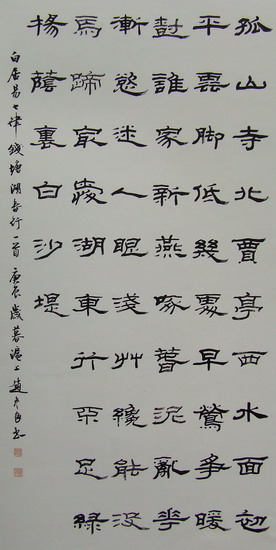 孤山寺北賈亭西水面初
平雲脚低幾處早鶯爭暖
樹誰家新燕啄春泥亂花
漸慾迷人眼淺艸纔能没
馬蹄最愛湖東行不足綠
楊蔭裏白沙堤
白居易七律錢塘湖春行一首 庚辰歲暮滬上趙書